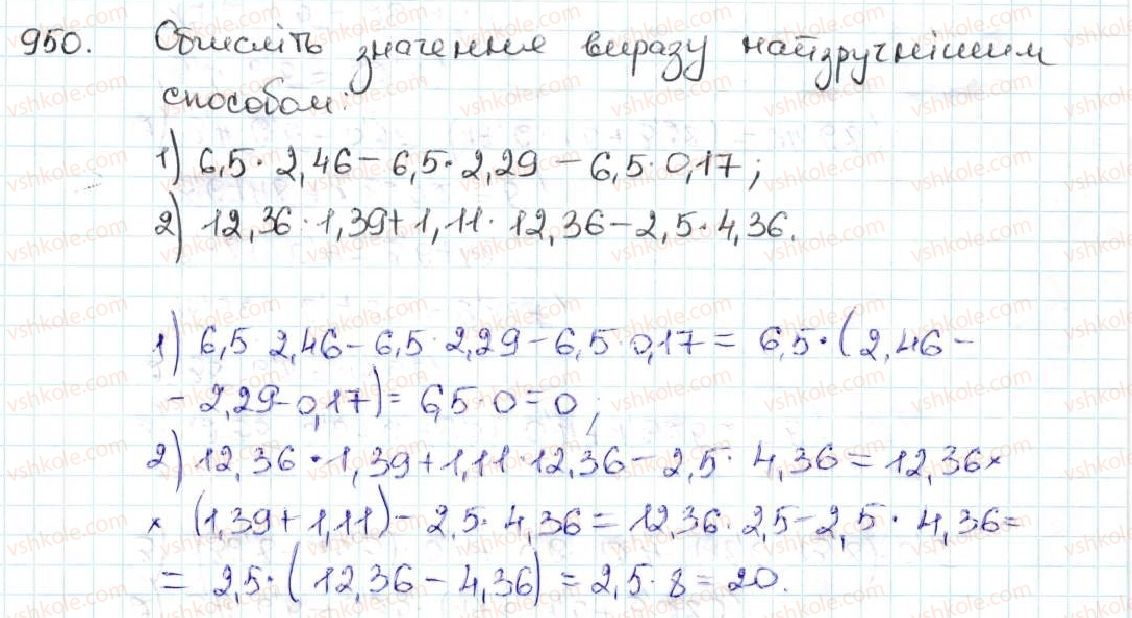 950. Обчисліть значення виразу найзручнішим
способом:
1) 6,5 · 2,46 − 6,5 · 2,29 − 6,5 · 0,17;
2) 12,36 · 1,39 + 1,11 · 12,36 − 2,5 · 4,36.
1) 6,5 · 2,46 − 6,5 · 2,29 − 6,5 · 0,17 = 6,5 · (2,46 −
− 2,29 − 0,17) = 6,5 · 0 = 0;
2) 12,36 · 1,39 + 1,11 · 12,36 − 2,5 · 4,36 = 12,36 ×
× (1,39 + 1,11) − 2,5 · 4,36 = 12,36 · 2,5 − 2,5 · 4,36 =
= 2,5 · (12,36 − 4,36) = 2,5 · 8 = 20.